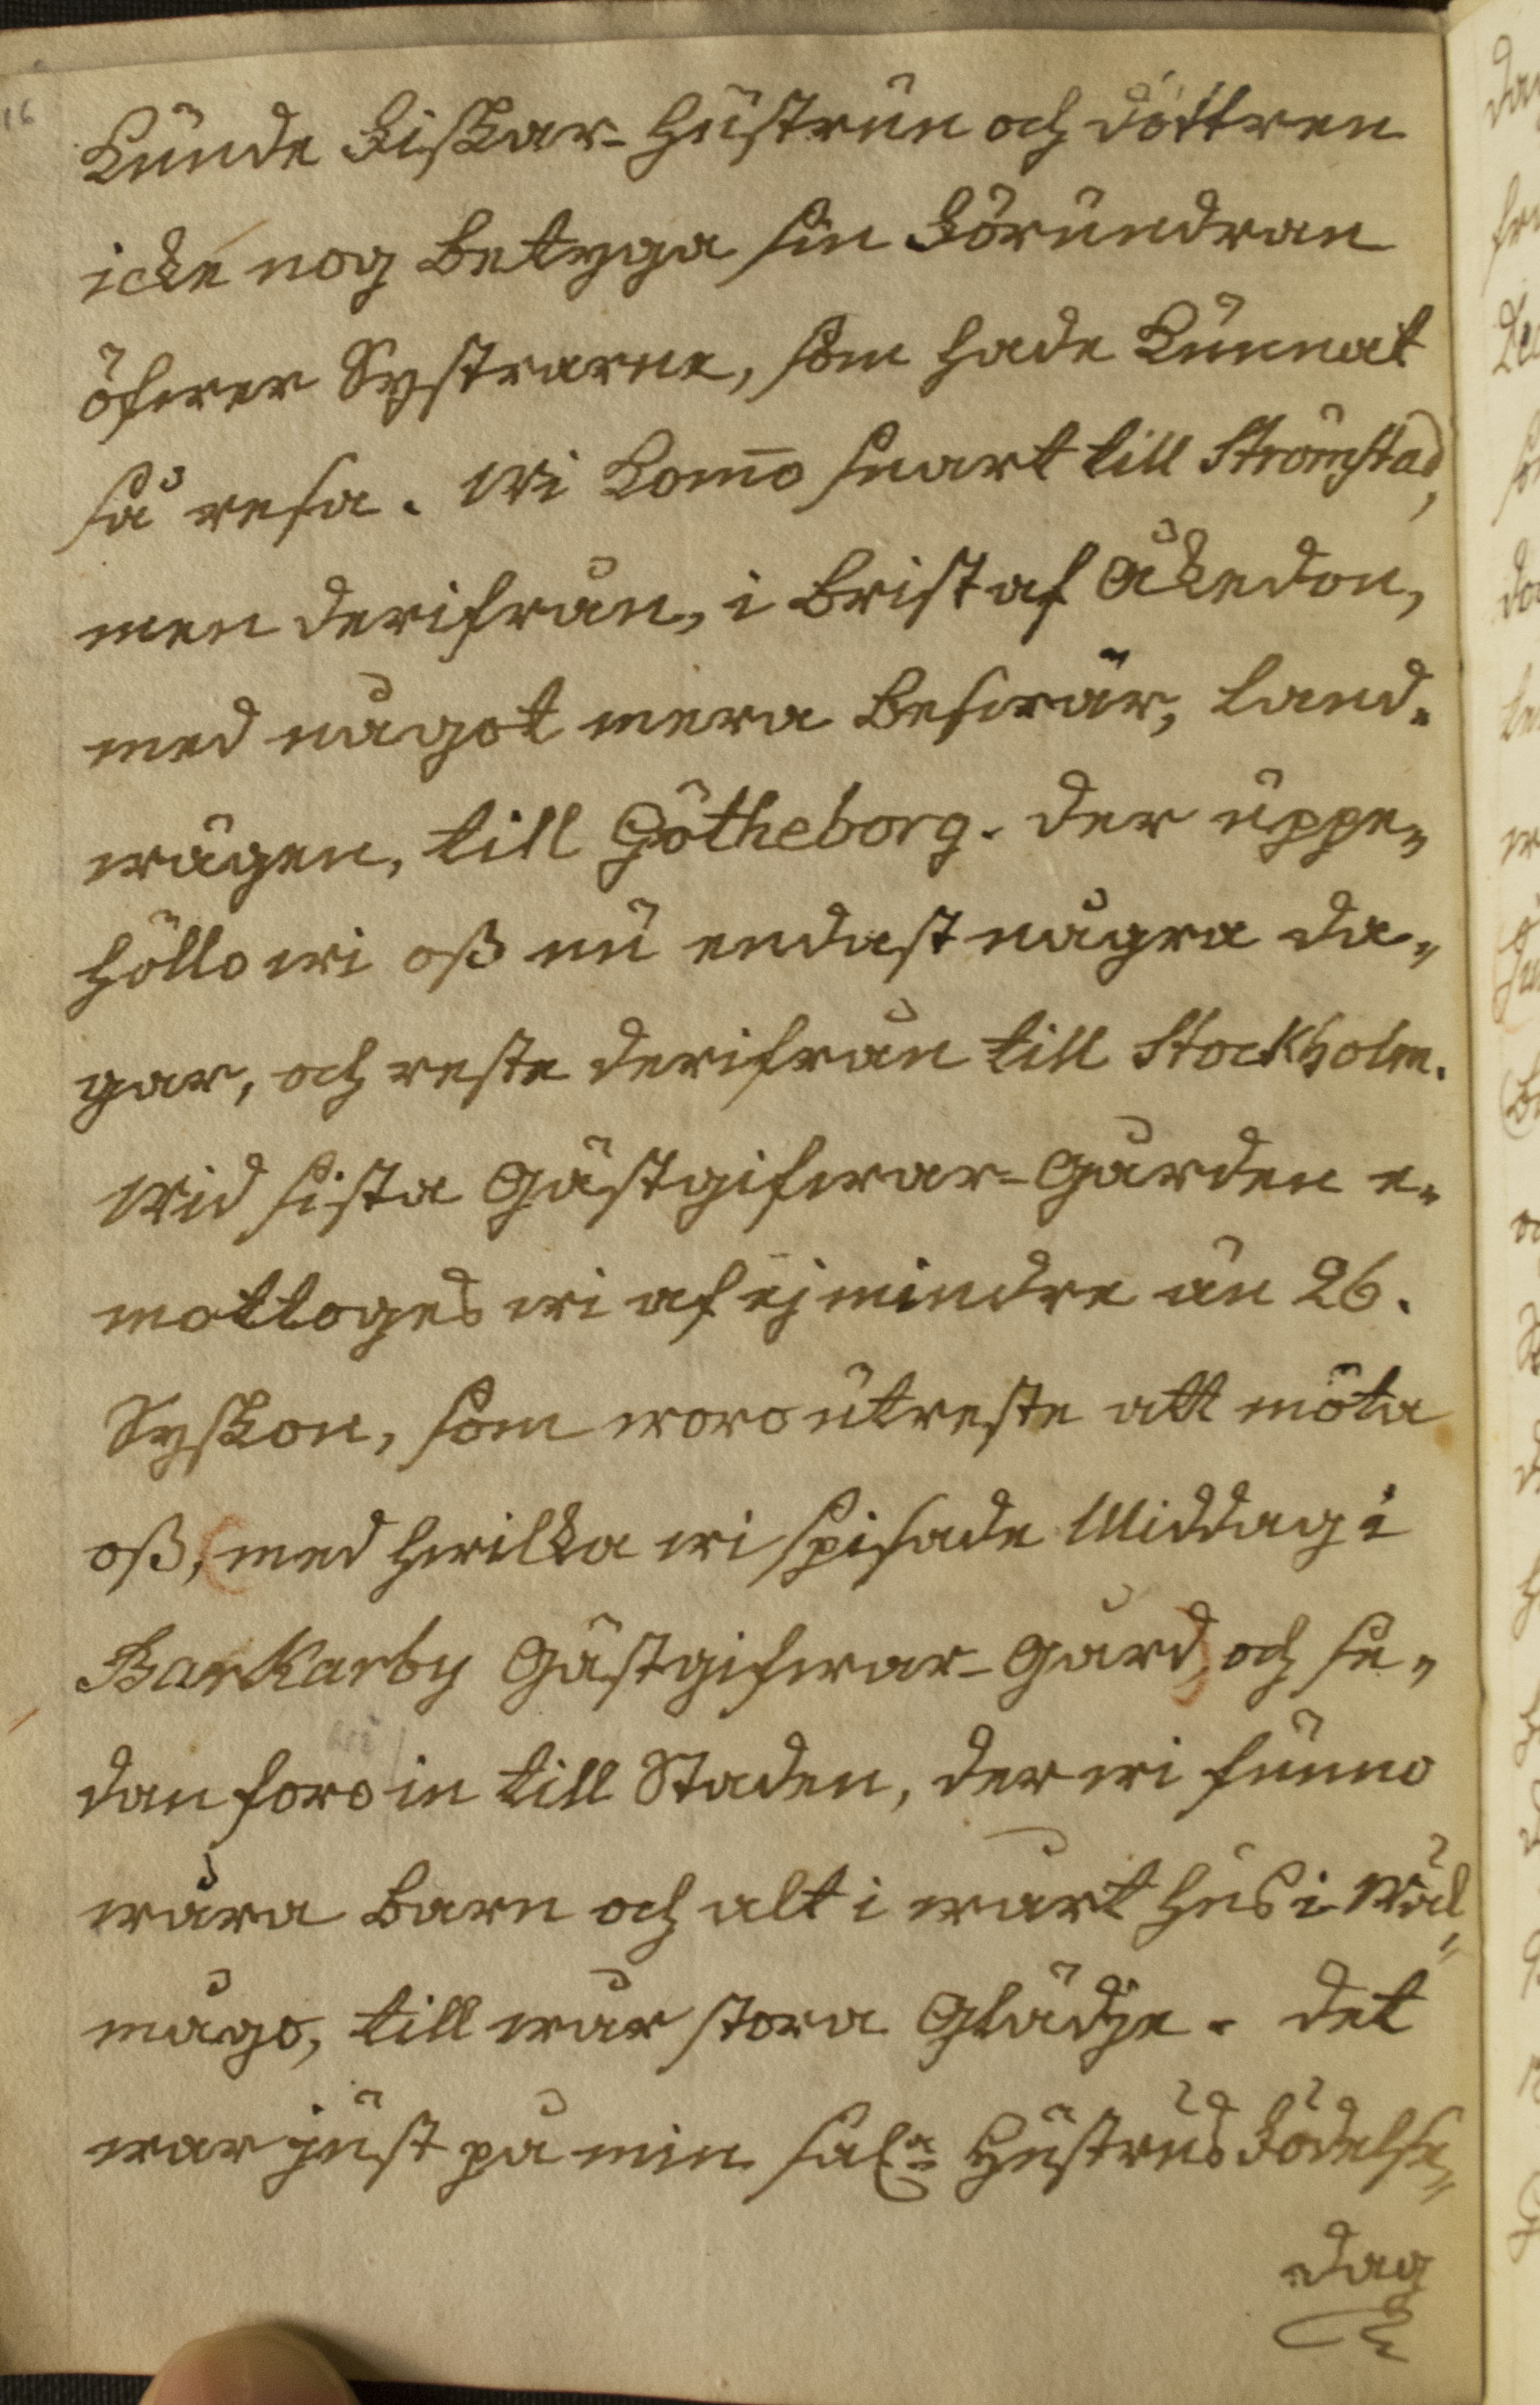 16
Kunde Fiskar-Hustrun och dottren
icke nog betyga sin Förundran
öfwer Systrarne, som hade Kunnat
så resa. Wi Komo snart till Strömstad,
men derifrån, i brist af Åkedon,
med något mera beswär, land-
wägen, till Götheborg. Der uppe-
höllo wi oß nu endast några da-
gar, och reste derifrån till Stockholm.
Wid sista Gästgifwar-Gården e-
mottoges wi af ej mindre än 26.
Syskon, som woro utreste att möta
oß, (med hwilka wi spisade Middag i
Barkarby Gästgifwar-Gård) och se-
dan foro in till Staden, der wi funno
wåra Barn och alt i wårt Hus i Wäl-
mågo, till wår stora Glädje. Det
war just på min Sal. Hustrus Födelse-
dag